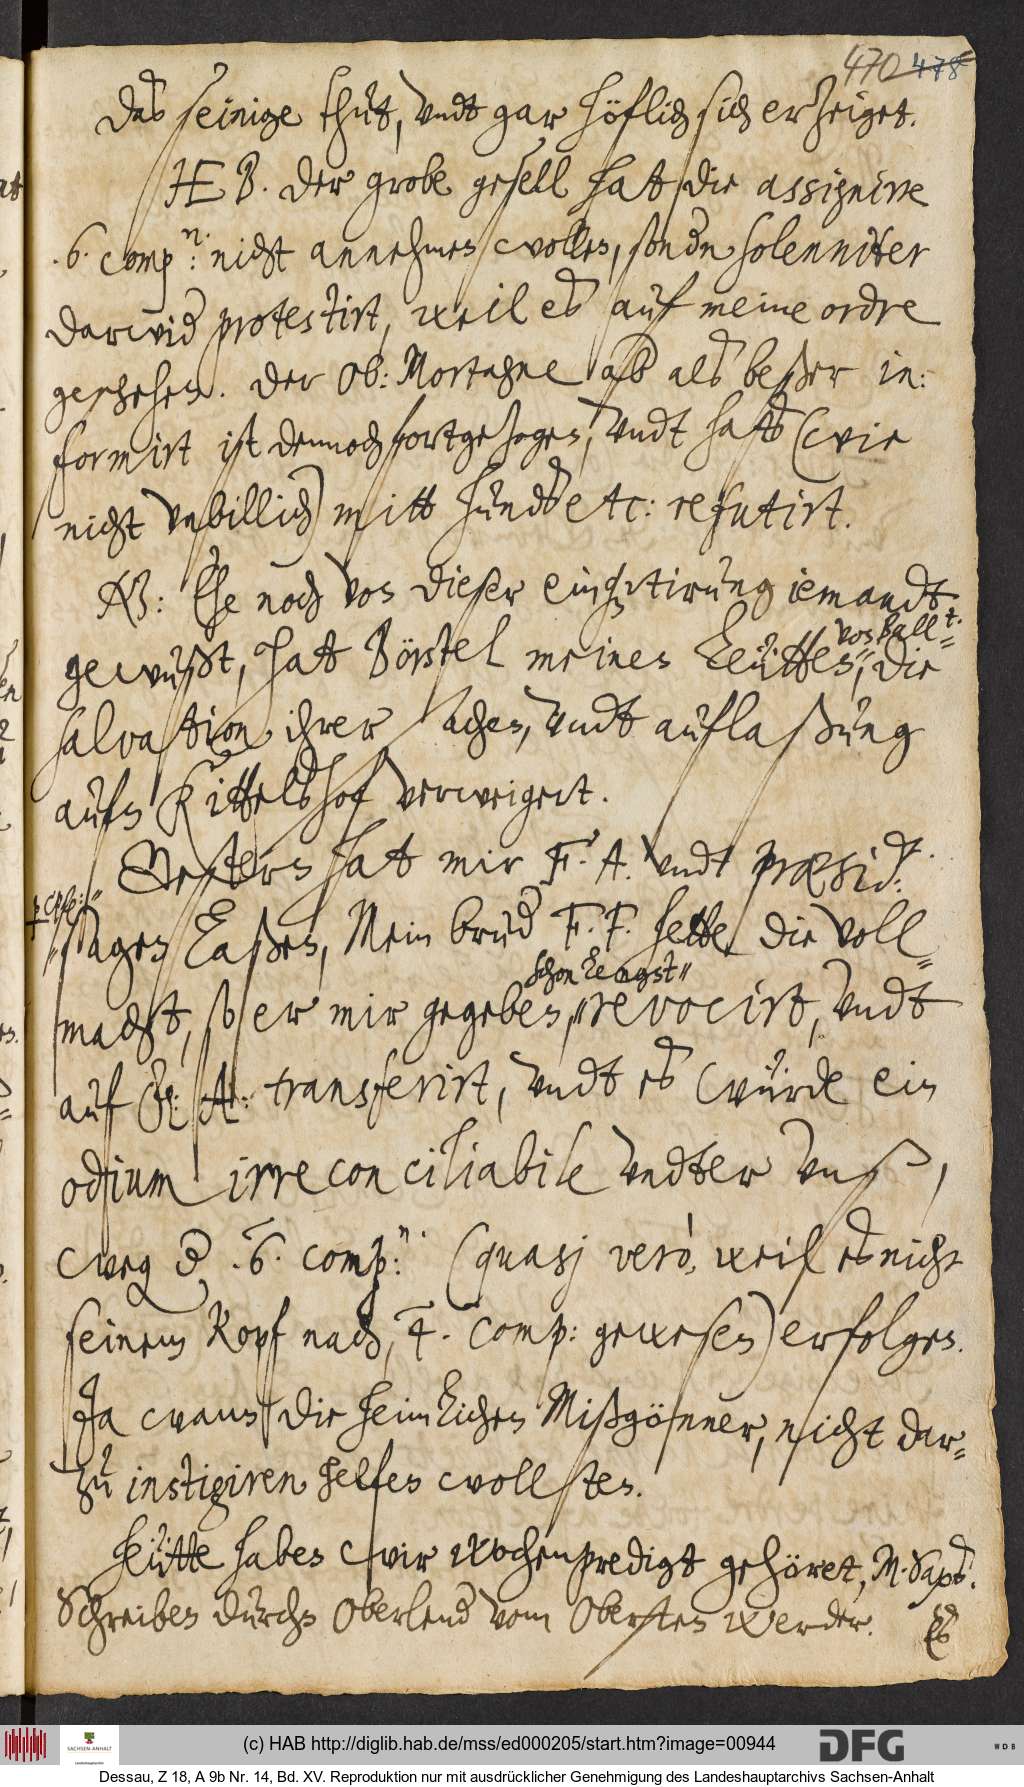 470 478
Das seinige thut, undt gar höflich sich erzeiget.
HEB. der grobe gesell hat die assignirte
.6. comp.n: nicht annehmen wollen, sondn solenniter
darwid protestirt, weil es auf meine ordre
geschehen. der Ob: Mortagne ab als beßer in:
formirt ist dennoch fortgezogen, undt hats (wie
nicht unbillich) mitt hunds etc: refutirt.
NB: Ehe noch von dieser einquartirung iemandt
gewußt, hat Börstel meinen Leütten, von Ball.t. die
salvation ihrer sachen, undt auflaßung
aufn Rittelshof verweigert.
Gestern hat mir F. A. undt præsid.t.
sagen laßen, Mein brud F. F. hette die voll-
macht, so er mir gegeben, schon lengst revocirt, undt
auf F: A: transferirt, undt es würde ein
odium irreconciliabile undter unß,
weg d .6. comp.n: (quasj verò, weil es nicht
seinem Kopf nach, 4. comp: gewesen) erfolgen.
Ja wann die heimlichen Mißgönner, nicht dar-
zu instigiren helfen wollten.
Heütte haben wir wochenpredigt gehöret, M. Sax.
Schreiben durchs Oberlend vom Obersten Werder.
Es
(c) HAB http://diglib.hab.de/mss/ed000205/start.htm?image=00944
SACHSEN-ANHALT
Landeshauptarchiv
DFG
WDB
Dessau, Z 18, A 9b Nr. 14, Bd. XV. Reproduktion nur mit ausdrücklicher Genehmigung des Landeshauptarchivs Sachsen-Anhalt